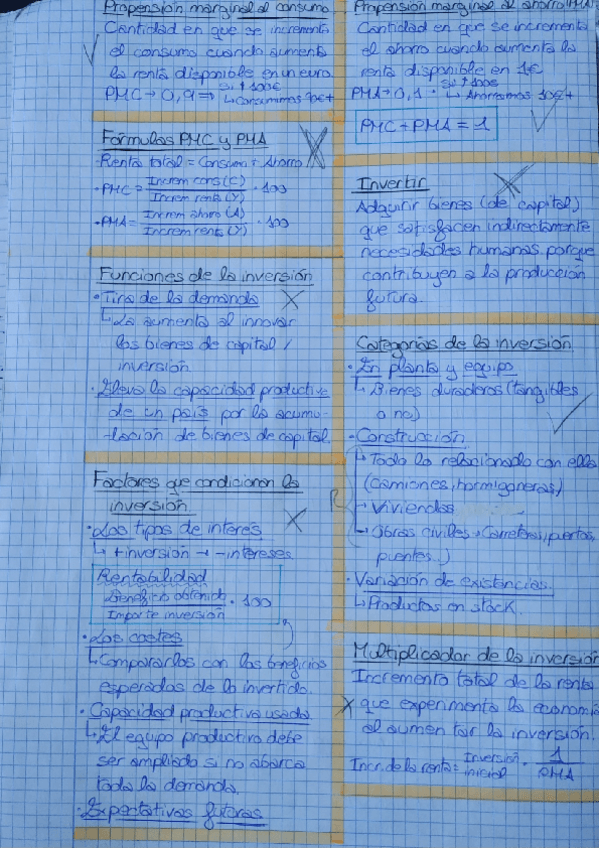 Propensión marginal al consumo
Cantidad en que se incrementa
el consumo cuando aumenta
la renta disponible en un euro.
PMC → 0,9 ⇒ Si ↑ 100€
↳ Consumimos 90€+
Fórmulas PMC y PMA
-Renta total = Consumo + Ahorro
• PMC = Increm cons (C) / Increm renta (Y) · 100
• PMA = Increm ahorro (A) / Increm rent (Y) · 100
Funciones de la inversión
• Tira de la demanda
↳ La aumenta al innovar
los bienes de capital /
inversión
• Eleva la capacidad productiva
de un país por la acumu-
-lación de bienes de capital.
Factores que condicionan la
inversión
• Los tipos de interés
↳ + inversión → - intereses
Rentabilidad
Beneficio obtenido / Importe inversión · 100
• Los costes
↳ Compararlos con los beneficios
esperados de lo invertido.
• Capacidad productiva usada
↳ El equipo productivo debe
ser ampliado si no abarca
toda la demanda.
• Expectativas futuras
Propensión marginal al ahorro (PMA)
Cantidad en que se incrementa
el ahorro cuando aumenta la
renta disponible en 1€
PMA → 0,1 · Si ↑ 100€
↳ Ahorramos 10€+
PMC + PMA = 1
Invertir
Adquirir bienes (de capital)
que satisfacen indirectamente
necesidades humanas porque
contribuyen a la producción
futura.
Categorías de la inversión
• En planta y equipo
↳ Bienes duraderos (tangibles
o no)
• Construcción
↳ Todo lo relacionado con ella
(camiones, hormigoneras)
→ Viviendas
↳ Obras civiles → (carreteras, puertos,
puentes..)
• Variación de existencias.
↳ Productos en stock.
Multiplicador de la inversión
Incremento total de la renta
que experimenta la economía
al aumentar la inversión.
Incr. de la renta = Inversión inicial · 1 / PMA